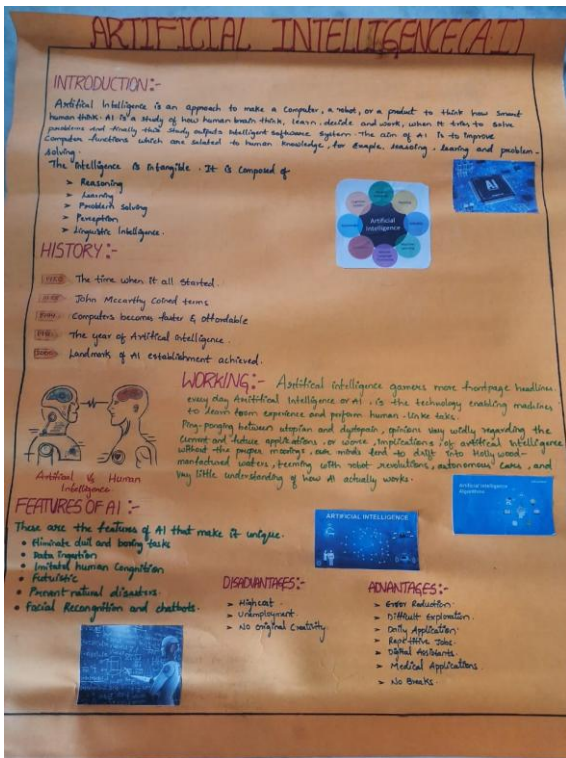 ARTIFICIAL INTELLIGENCE(AI)
INTRODUCTION:-
Artifical Intelligence is an approach to make a Computer, a robot, or a product to think how smart
human think. AI is a study of how human brain think, learn, decide and work, when it tries to solve
problems and finally this study outputs intelligent software system. The aim of AI is to improve
Computer functions which are related to human knowledge, for example, reasoning, learning and problem-
solving.
The intelligence is intangible. It is composed of
➤ Reasoning
➤ Learning
➤ Problem Solving
➤ Perception
➤ Linguistic Intelligence.
AI
Artificial
Intelligence
HISTORY:-
The time when it all started.
John Mccarthy Coined terms
Computers becomes faster & affordable
The year of Artifical Intelligence.
Landmark of AI establishment achieved.
WORKING:- Artificial intelligence garners more frontpage headlines
every day Aritifical Intelligence or AI, is the technology enabling machines
to learn from experience and perform human-linke taks.
Ping-ponging between utopian and dystopain, opinions vary widly regarding the
Current and future applications, or worse, implications, of artifical Intelligence
without the proper moorings, our minds tend to drift into Hollywood-
manfactured waters, teeming with robot revolutions, autonomous cars, and
vary little understanding of how AI actually works.
Artifical Vs Human
Intelligence
FEATURES OF AI:-
These are the features of AI that make it unique.
• Eliminate dull and boring tasks
• Data ingestion
• Imitatel human Congnition
• Futuristic
• Prevent natural disasters.
• Facial Recongnition and chatbots.
ARTIFICIAL INTELLIGENCE
Artificial Intelligence
Algorithms
DISADVANTAGES:-
➤ High cost.
➤ Unemployment.
➤ No Original Creativity.
ADVANTAGES:-
➤ Error Reduction.
➤ Difficult Exploration.
➤ Daily Application.
➤ Repetitive Jobs.
➤ Digital Assistants.
➤ Medical Applications.
➤ No Breaks.